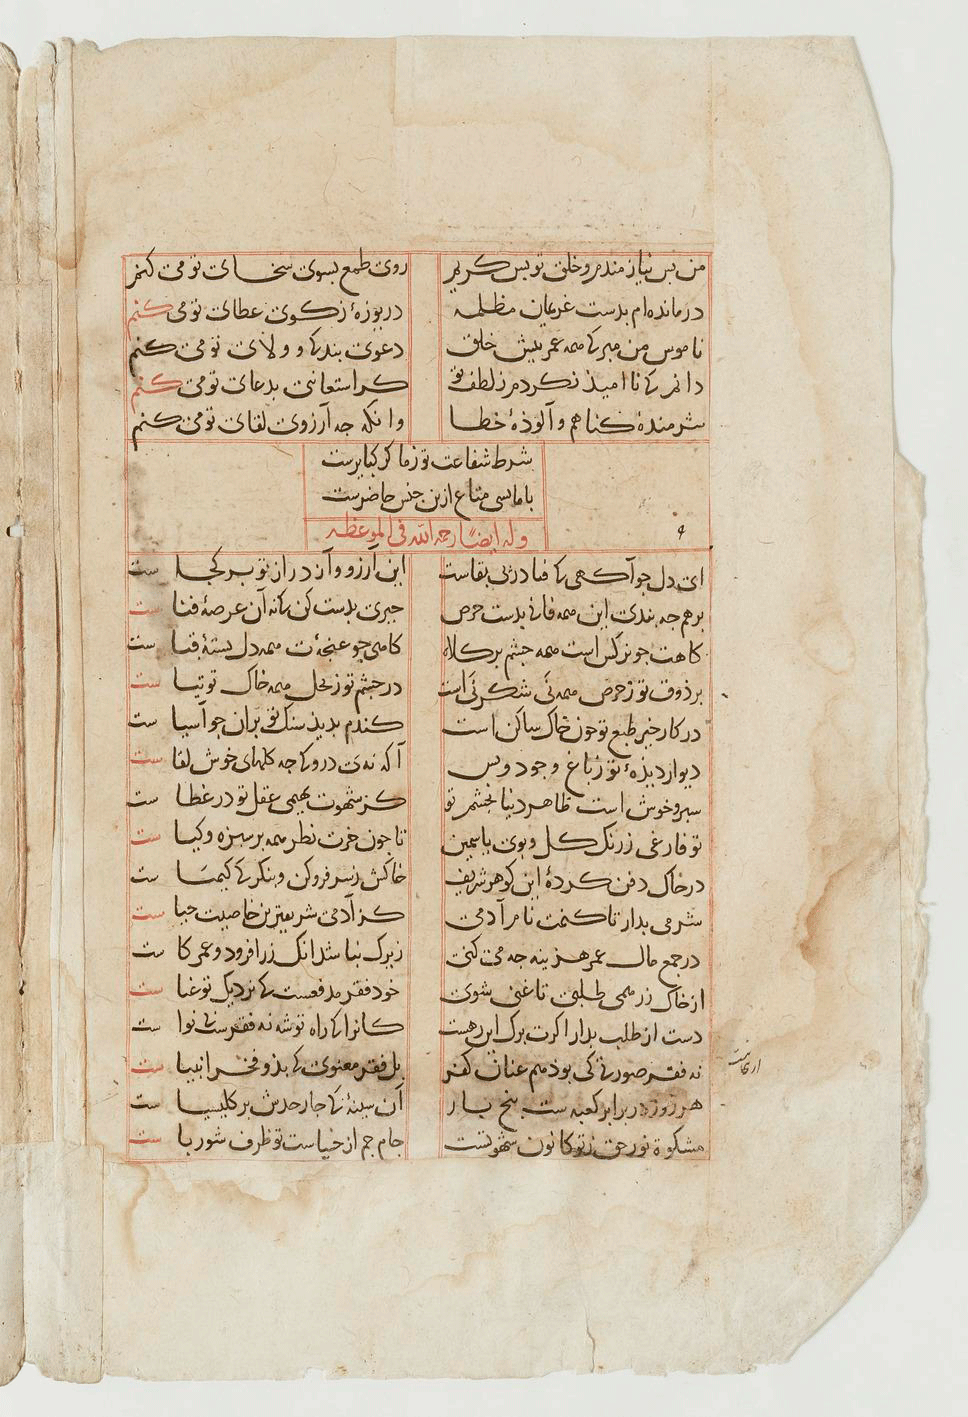 من بس نیازمندم و خلق تو بس کریم روی طمع بسوی سخای تو می کنم
درمانده ام بدست غریمان مظلمه دریوزهٔ ز کوی عطای تو می کنم
ناموس من مبر که همه عمر پیش خلق دعوی بندکی و ولای تو می کنم
دانم که ناامیذ نکردم ز لطف تو کر استعانتی بدعای تو می کنم
شرمندهٔ کناهم و آلوذهٔ خطا وانکه جه آرزوی لقای تو می کنم
شرط شفاعت تو ز ما کر کبایرست
با ما بسی متاع ازین جنس حاضرست
وله ایضاً رحمه الله فی الموعظه
ای دل جو آکهی که فنا در پی بقاست این آرزو و آز دراز تو بر کجاست
بر هم جه بندی این همه فانی بدست حرص جیزی بدست کن که نه آن عرصهٔ فناست
کاهت جو نرکس است همه جشم بر کلاه کاهی جو غنجه ت همه دل بستهٔ قباست
بر ذوق تو ز حرص همه نی شکر نی است در جشم تو ز بخل همه خاک توتیاست
در کار خیر طبع تو جون خاک ساکن است کندم بدید سنک تو بران جو آسیاست
دیوار دیذهٔ تو ز باغ وجود و بس آکه نهٔ ی درو که جه کلهای خوش لقاست
سبز و خوش است ظاهر دنیا بجشم تو کز شهوت بهیمی عقل تو در غطاست
تو فارغی ز رنک کل و بوی یاسمین تا جون خرت نظر همه بر سبزه و کیاست
در خاک دفن کردهٔ این کوهر شریف خاکش بسر فرو کن و بنکر که کیمیاست
شرمی بدار تا کنمت نام آدمی کز آدمی شریفترین خاصیت حیاست
در جمع مال عمر هزینه جه می کنی زیرک نباشد انک زر افزود و عمر کاست
از خاک زر همی طلبی تا غنی شوی خود فقر مدقعست که نزدیک تو غناست
دست از طلب بدار اکرت برک این رهست کانرا که راه توشه نه فقرست بی نواست
نه فقر صورتی که بوذ هم عنان کفر بل فقر معنوی که بذو فخر انبیاست
هر روز در برابر کعبه ست پنج بار آن سینهٔ که جار حدش بر کلیسیاست
مشکوة نور حق ز تو کانون شهوتست جام جم از خیاست تو ظرف شورباست